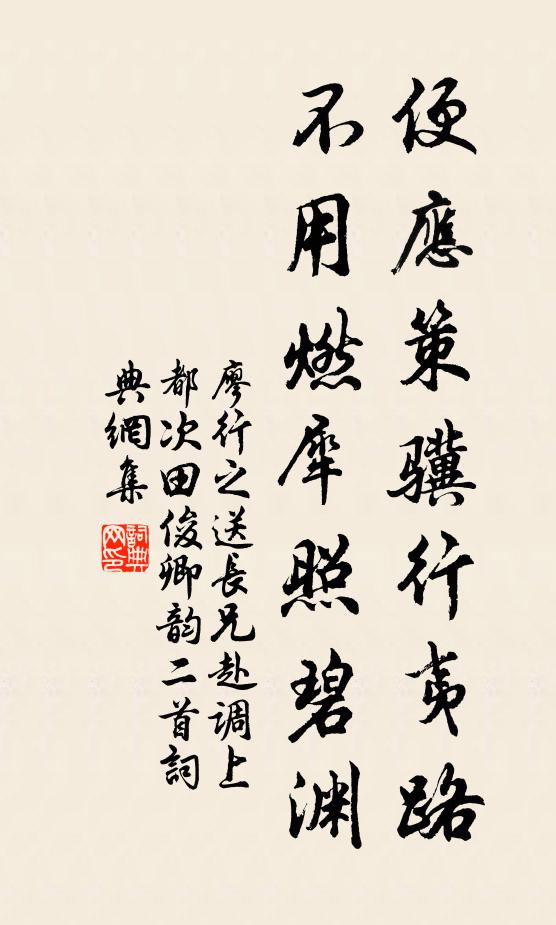 便應策骥行夷路
不用燃犀照碧渊
廖行之送長兄赴调上
都次田俊卿韵二首詞
典網集
詞典網印